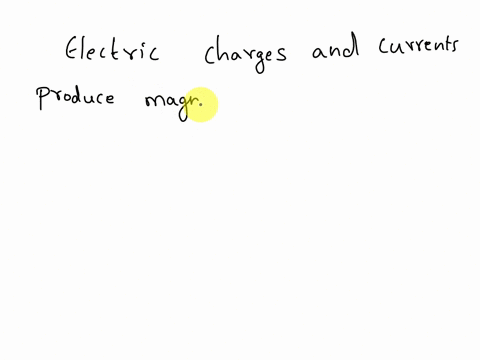 Electric charges and currents
produce magn